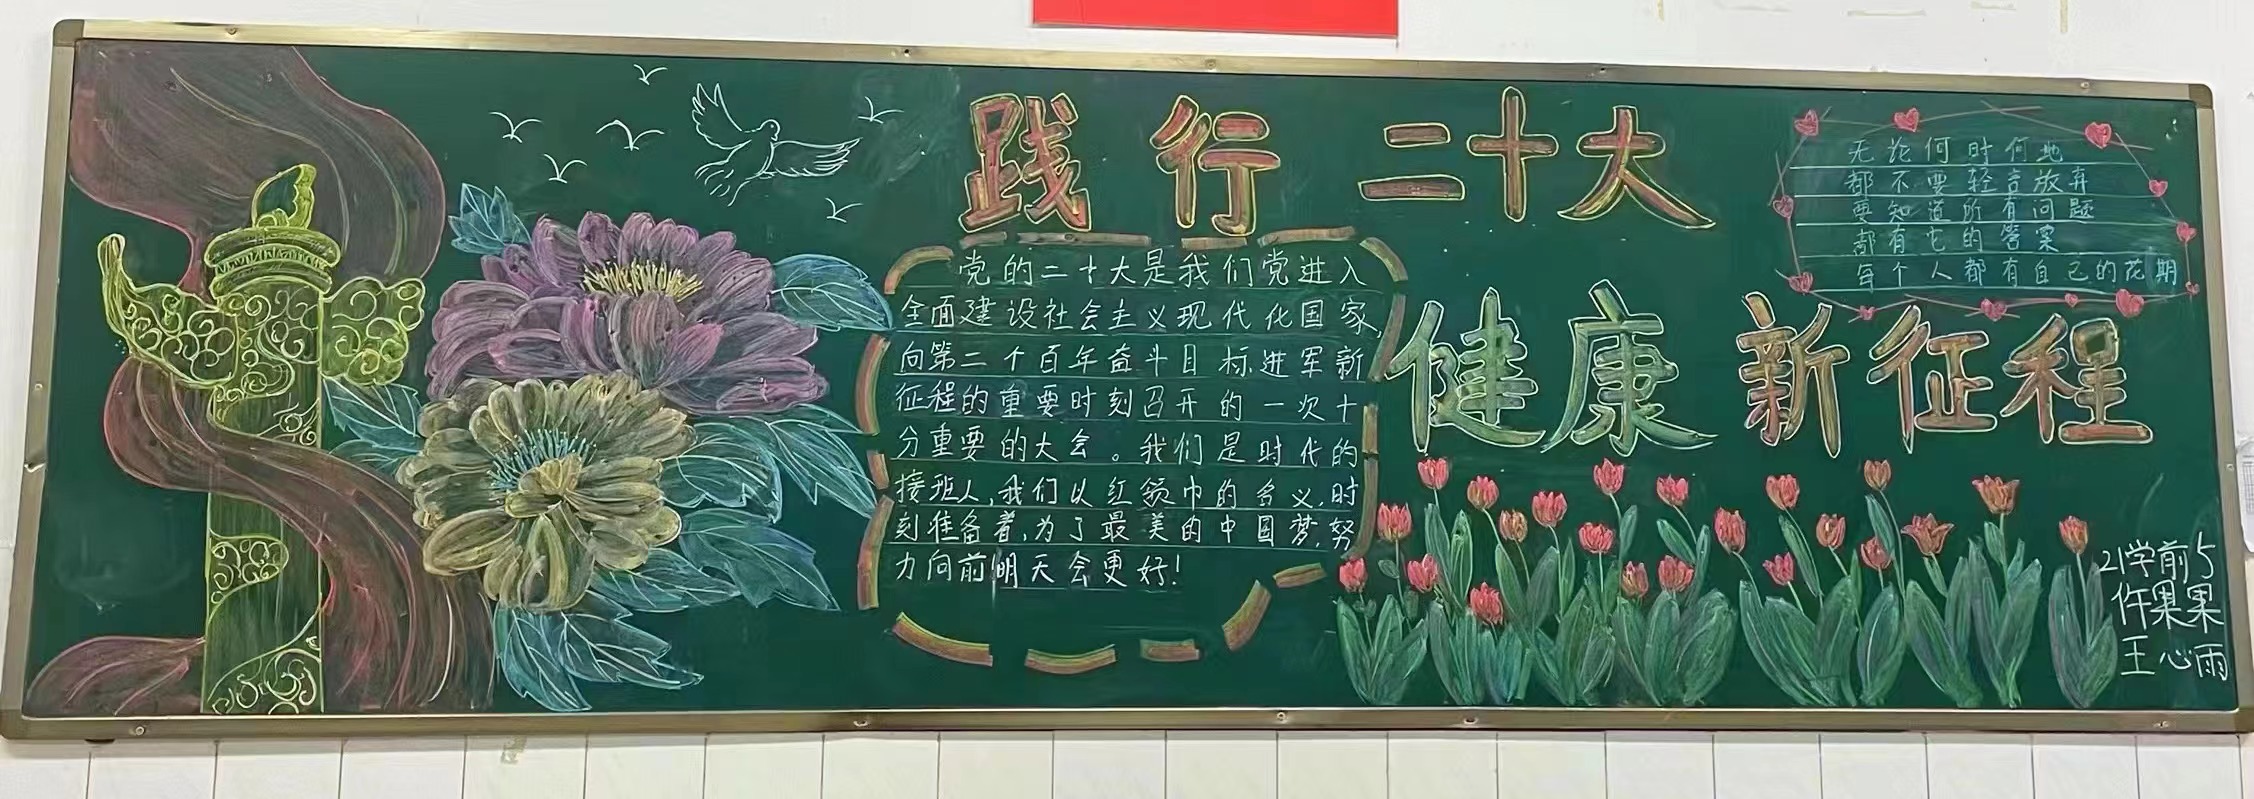 践行二十大
健康新征程
党的二十大是我们党进入
全面建设社会主义现代化国家,
向第二个百年奋斗目标进军新
征程的重要时刻召开的一次十
分重要的大会。我们是时代的
接班人,我们以红领巾的名义,时
刻准备着,为了最美的中国梦,努
力向前明天会更好!
无论何时何地
都不要轻言放弃
要知道所有问题
都有它的答案
每个人都有自己的花期
21学前5
仵果果
王心雨